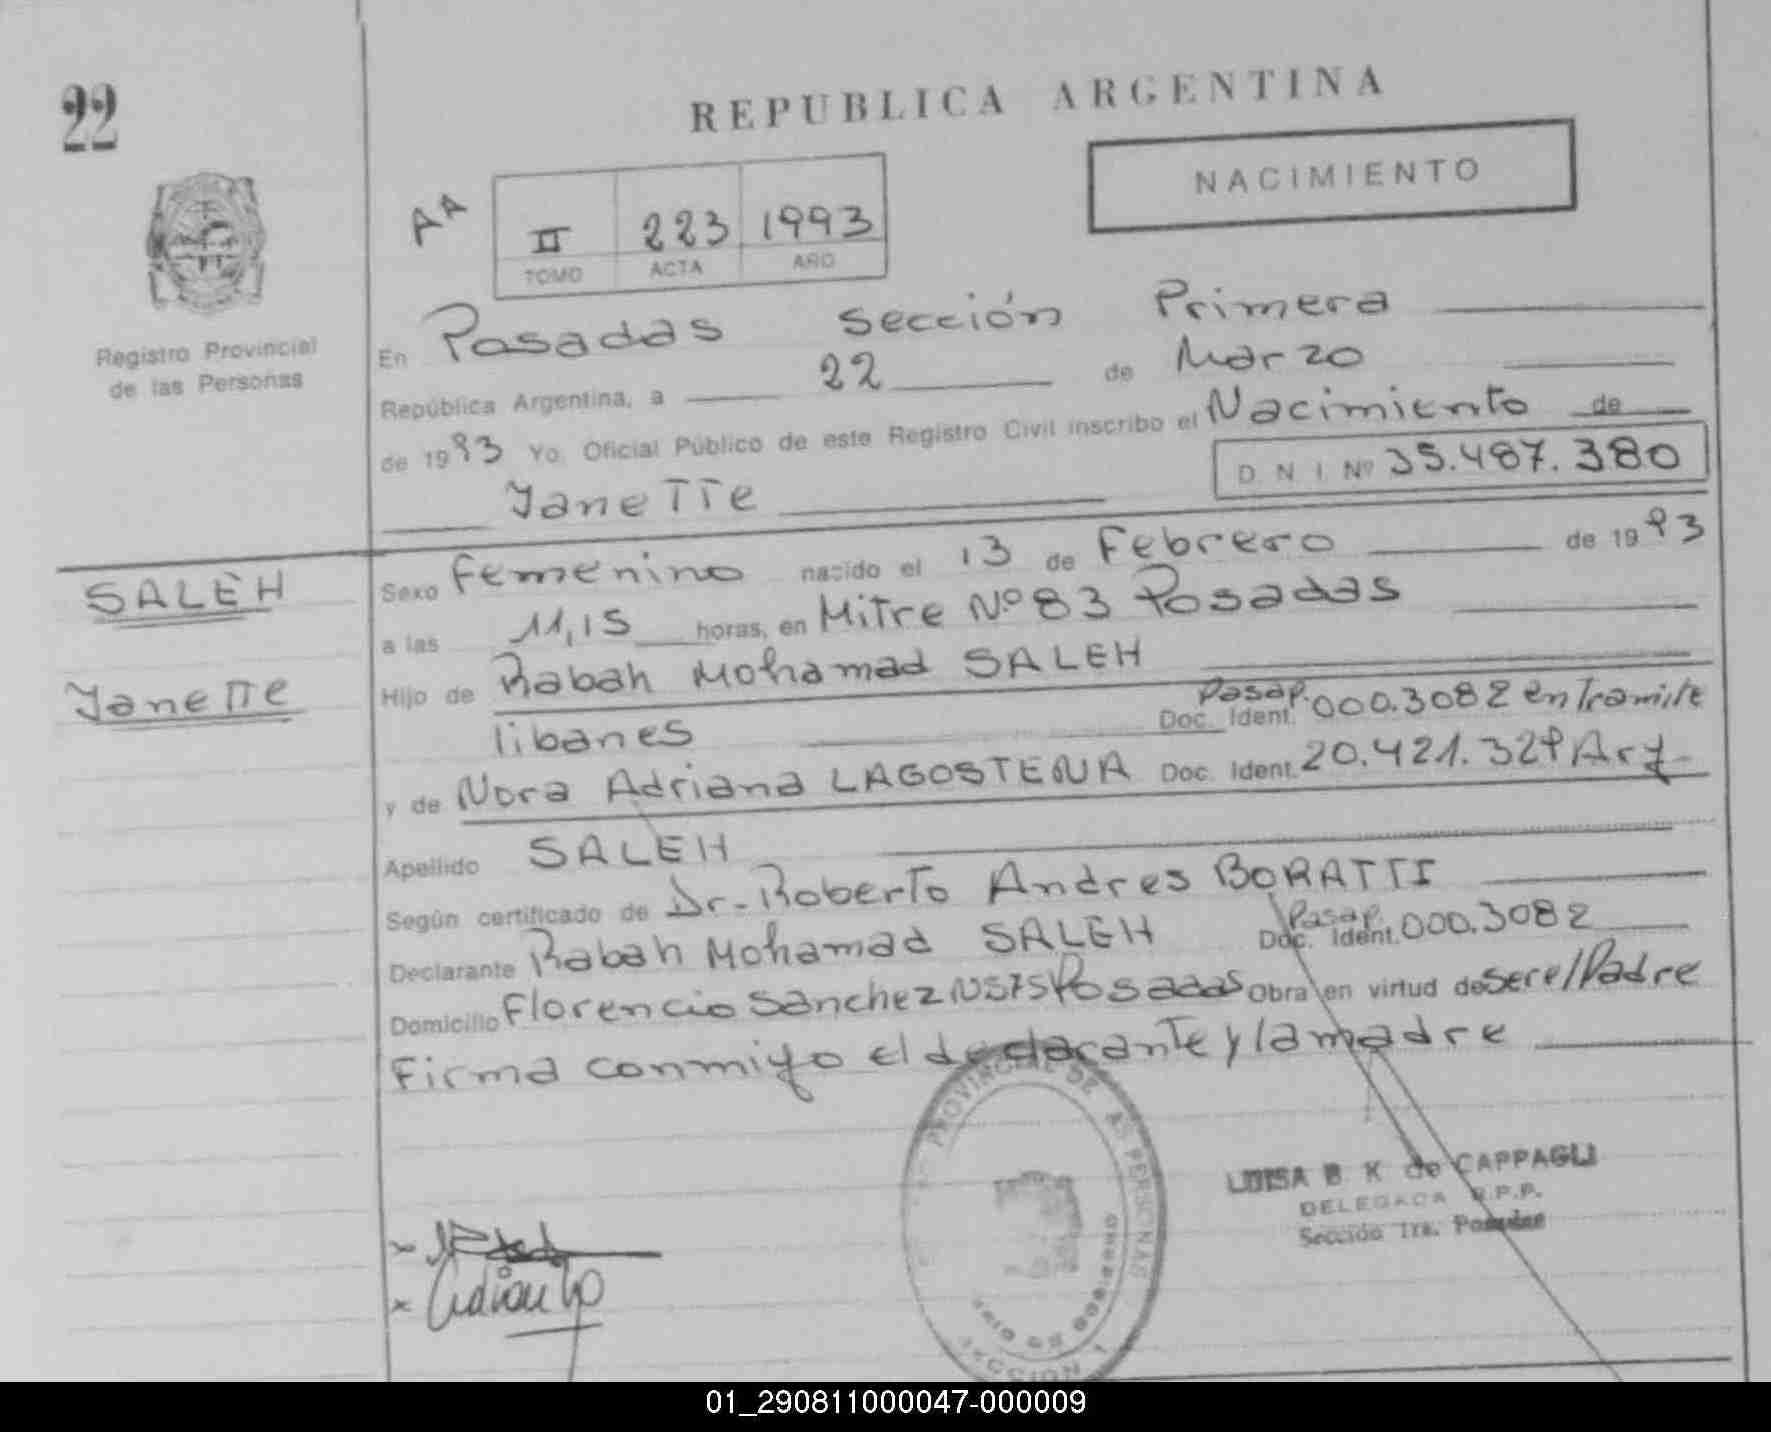 22
REPUBLICA ARGENTINA
NACIMIENTO
AA
II 223 1993
TOMO ACTA AÑO
Registro Provincial
de las Personas
En Posadas Sección Primera
República Argentina, a 22 de Marzo
de 1993 Yo, Oficial Público de este Registro Civil inscribo el Nacimiento de
D N I Nº 35.487.380
Janette
SALEH
Janette
Sexo Femenino nacido el 13 de Febrero de 1993
a las 11,15 horas, en Mitre Nº 83 Posadas
Hijo de Rabah Mohamad SALEH
libanes Doc. Ident. Pasap. 000.3082 en Tramite
y de Nora Adriana LAGOSTENA Doc. Ident. 20.421.329 Arg
Apellido SALEH
Según certificado de Dr. Roberto Andres BORATTI
Declarante Rabah Mohamad SALEH Doc. Ident. Pasap. 000.3082
Domicilio Florencio Sanchez Nº 575 Posadas Obra en virtud de ser el Padre
Firma conmigo el declarante y la madre
PROVINCIAL DE LAS PERSONAS
SECCION 1
LUISA B. K. de CAPPAGLI
DELEGADA R.P.P.
Sección 1ra. Posadas
01_290811000047-000009